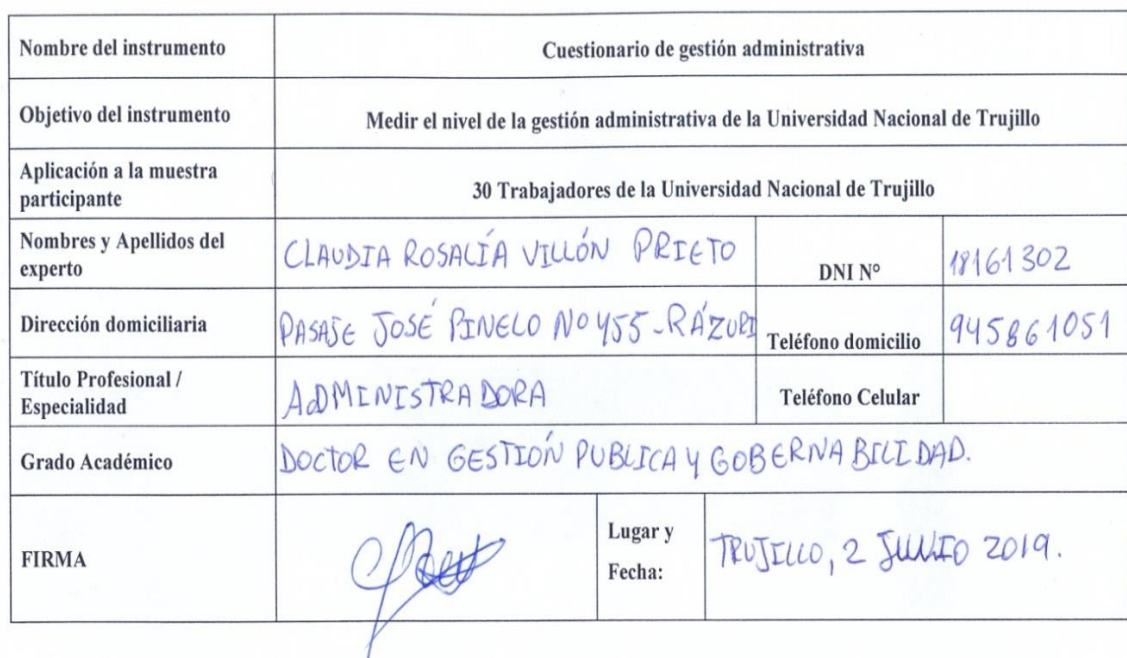 Nombre del instrumento
Cuestionario de gestión administrativa
Objetivo del instrumento
Medir el nivel de la gestión administrativa de la Universidad Nacional de Trujillo
Aplicación a la muestra
participante
30 Trabajadores de la Universidad Nacional de Trujillo
Nombres y Apellidos del
experto
CLAUDIA ROSALÍA VILLÓN PRIETO
DNI Nº
18161302
Dirección domiciliaria
PASAJE JOSÉ PINELO Nº 455-RÁZURI
Teléfono domicilio
945861051
Título Profesional /
Especialidad
ADMINISTRADORA
Teléfono Celular
Grado Académico
DOCTOR EN GESTIÓN PUBLICA Y GOBERNABILIDAD.
FIRMA
Lugar y
Fecha:
TRUJILLO, 2 JUNIO 2019.